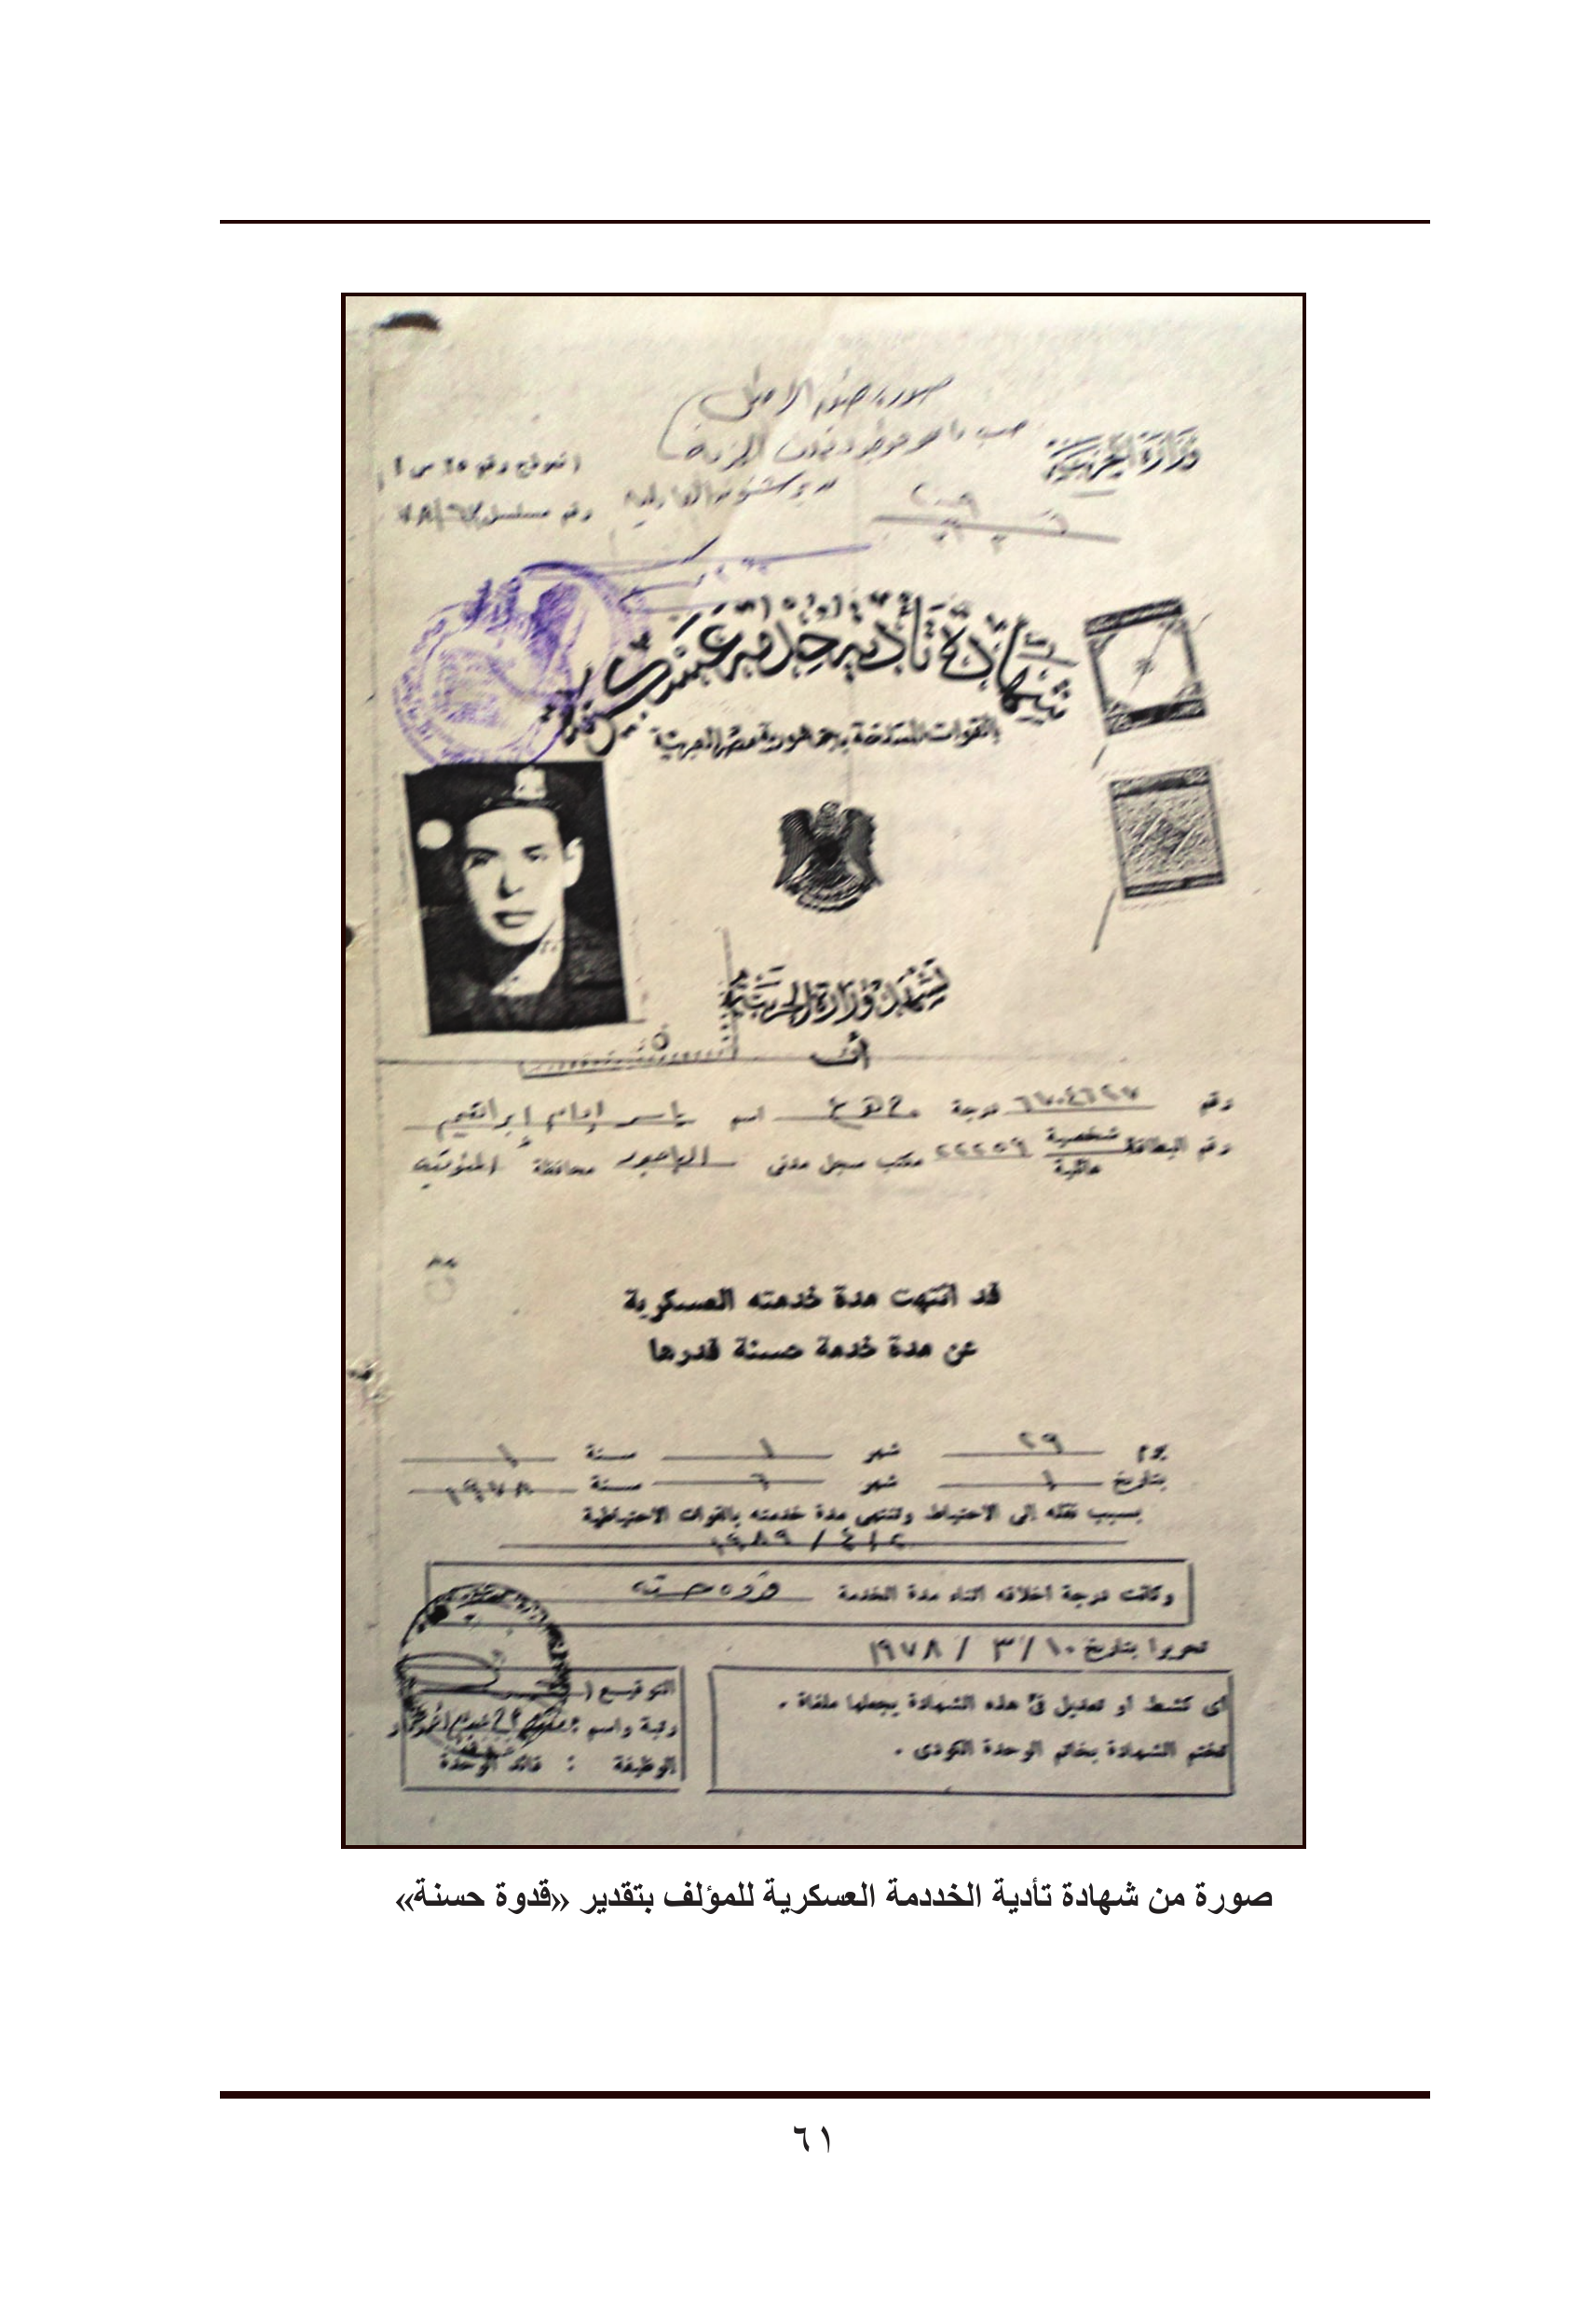 صورة طبق الاصل
وزارة الحربية
(نموذج رقم ٢٥ س)
رقم مسلسل
شهادة تأدية خدمة عسكرية
بالقوات المسلحة بجمهورية مصر العربية
تشهد وزارة الحربية
أن
رقم ٦٧٠٤٦٢٧ درجة اسم ياسر إمام إبراهيم
رقم البطاقة شخصية عائلية ٢٢٢٥٩ مكتب سجل مدنى الباجور محافظة المنوفية
قد انتهت مدة خدمته العسكرية
عن مدة خدمة حسنة قدرها
يوم ٢٩ شهر ١ سنة ١
بتاريخ ١ شهر ٦ سنة ١٩٧٨
بسبب نقله إلى الاحتياط وتنتهى مدة خدمته بالقوات الاحتياطية
١٩٨٩
وكانت درجة اخلاقه اثناء مدة الخدمة قدوه حسنه
تحريرا بتاريخ ١٠ / ٣ / ١٩٧٨
اى كشط او تعديل فى هذه الشهادة يجعلها ملغاة .
تختم الشهادة بخاتم الوحدة الكودى .
التوقيع (
رتبة واسم :
الوظيفة : قائد الوحدة
صورة من شهادة تأدية الخددمة العسكرية للمؤلف بتقدير «قدوة حسنة»
٦١